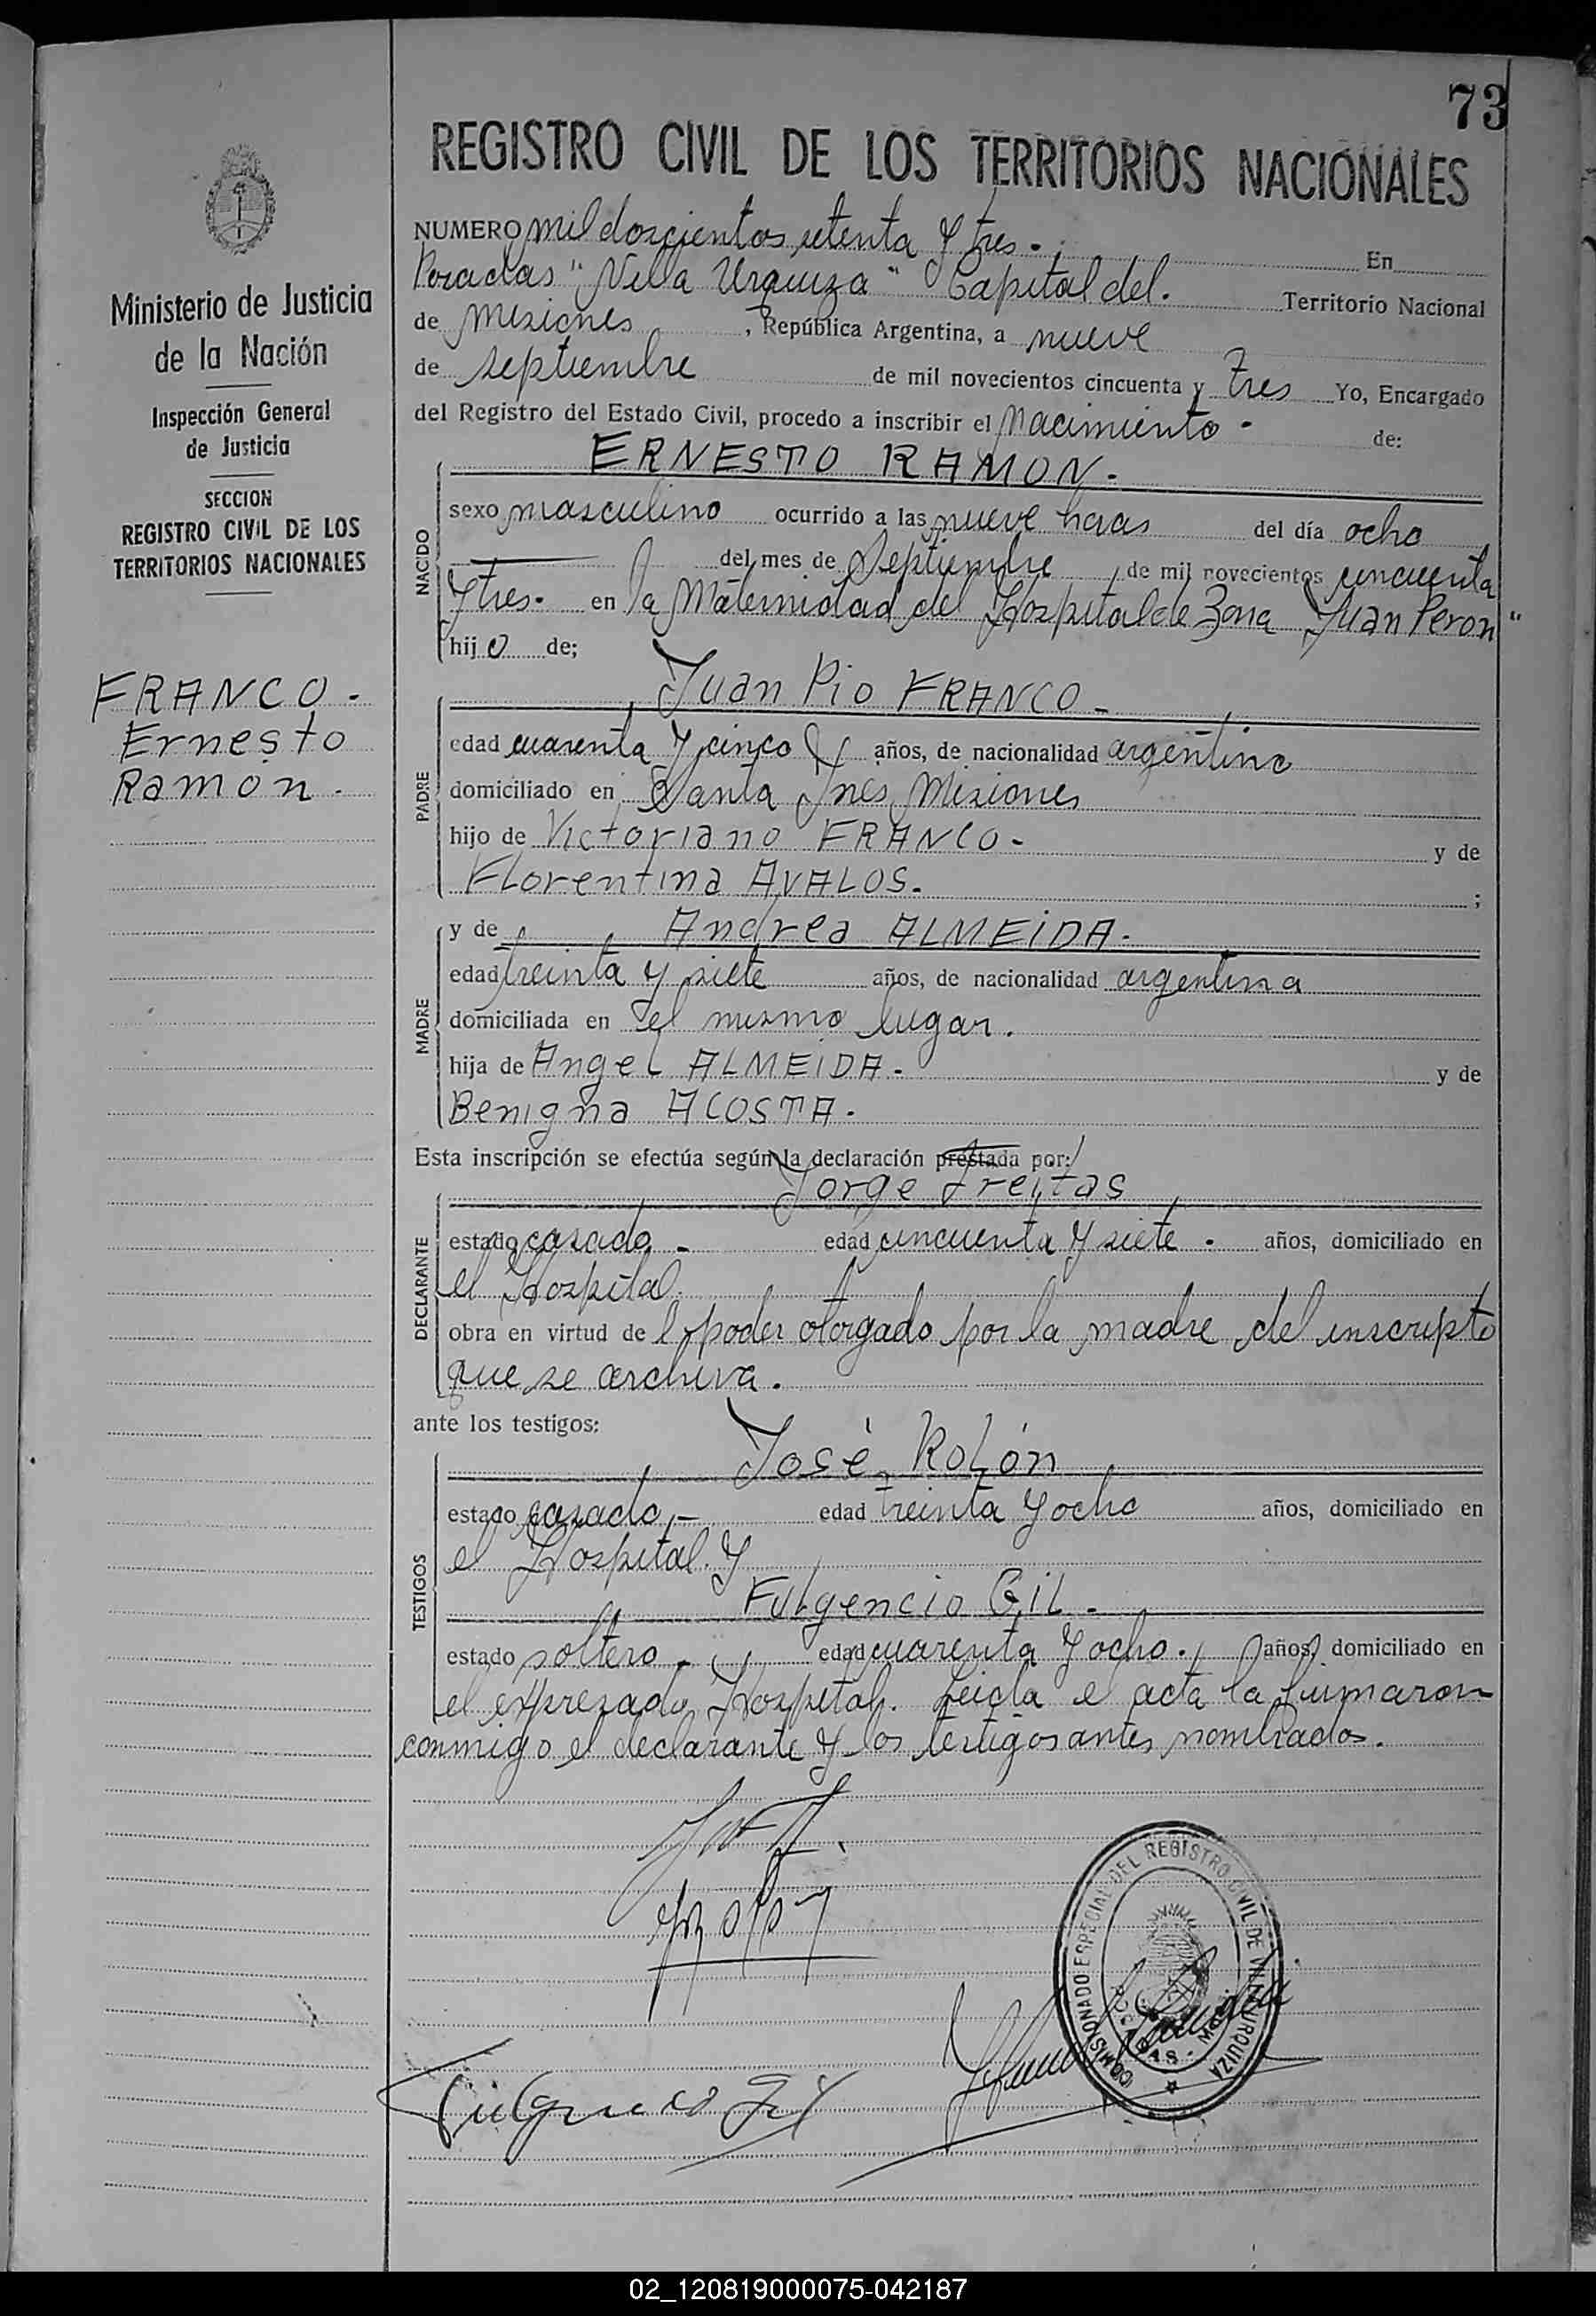 73
REGISTRO CIVIL DE LOS TERRITORIOS NACIONALES
Ministerio de Justicia
de la Nación
Inspección General
de Justicia
SECCION
REGISTRO CIVIL DE LOS
TERRITORIOS NACIONALES
FRANCO -
Ernesto
Ramón.
NUMERO mil doscientos setenta y tres. En
Posadas "Villa Urquiza" Capital del. Territorio Nacional
de Misiones, República Argentina, a nueve
de septiembre de mil novecientos cincuenta y tres Yo, Encargado
del Registro del Estado Civil, procedo a inscribir el Nacimiento - de:
NACIDO
ERNESTO RAMON.
sexo masculino ocurrido a las nueve horas del día ocho
del mes de Septiembre de mil novecientos cincuenta
y tres. en la Maternidad del Hospital de Zona "Juan Peron"
hijo de;
PADRE
Juan Pio FRANCO -
edad cuarenta y cinco años, de nacionalidad argentino
domiciliado en Santa Ines, Misiones
hijo de Victoriano FRANCO - y de
Florentina AVALOS. ;
MADRE
y de Andrea ALMEIDA.
edad treinta y siete años, de nacionalidad argentina
domiciliada en el mismo lugar.
hija de Angel ALMEIDA. y de
Benigna ACOSTA.
Esta inscripción se efectúa según la declaración prestada por:
DECLARANTE
Jorge Freitas
estado casado - edad cincuenta y siete. años, domiciliado en
el Hospital.
obra en virtud de l poder otorgado por la madre del inscripto
que se archiva.
ante los testigos:
TESTIGOS
José Rolón
estado casado,- edad treinta y ocho años, domiciliado en
el Hospital. y
Fulgencio GIL.
estado soltero - edad cuarenta y ocho. años, domiciliado en
el expresado Hospital. Leida el acta la firmaron
conmigo el declarante y los testigos antes nombrados.
COMISIONADO ESPECIAL DEL REGISTRO CIVIL DE VILLA URQUIZA
Fulgencio Gil
02_120819000075-042187